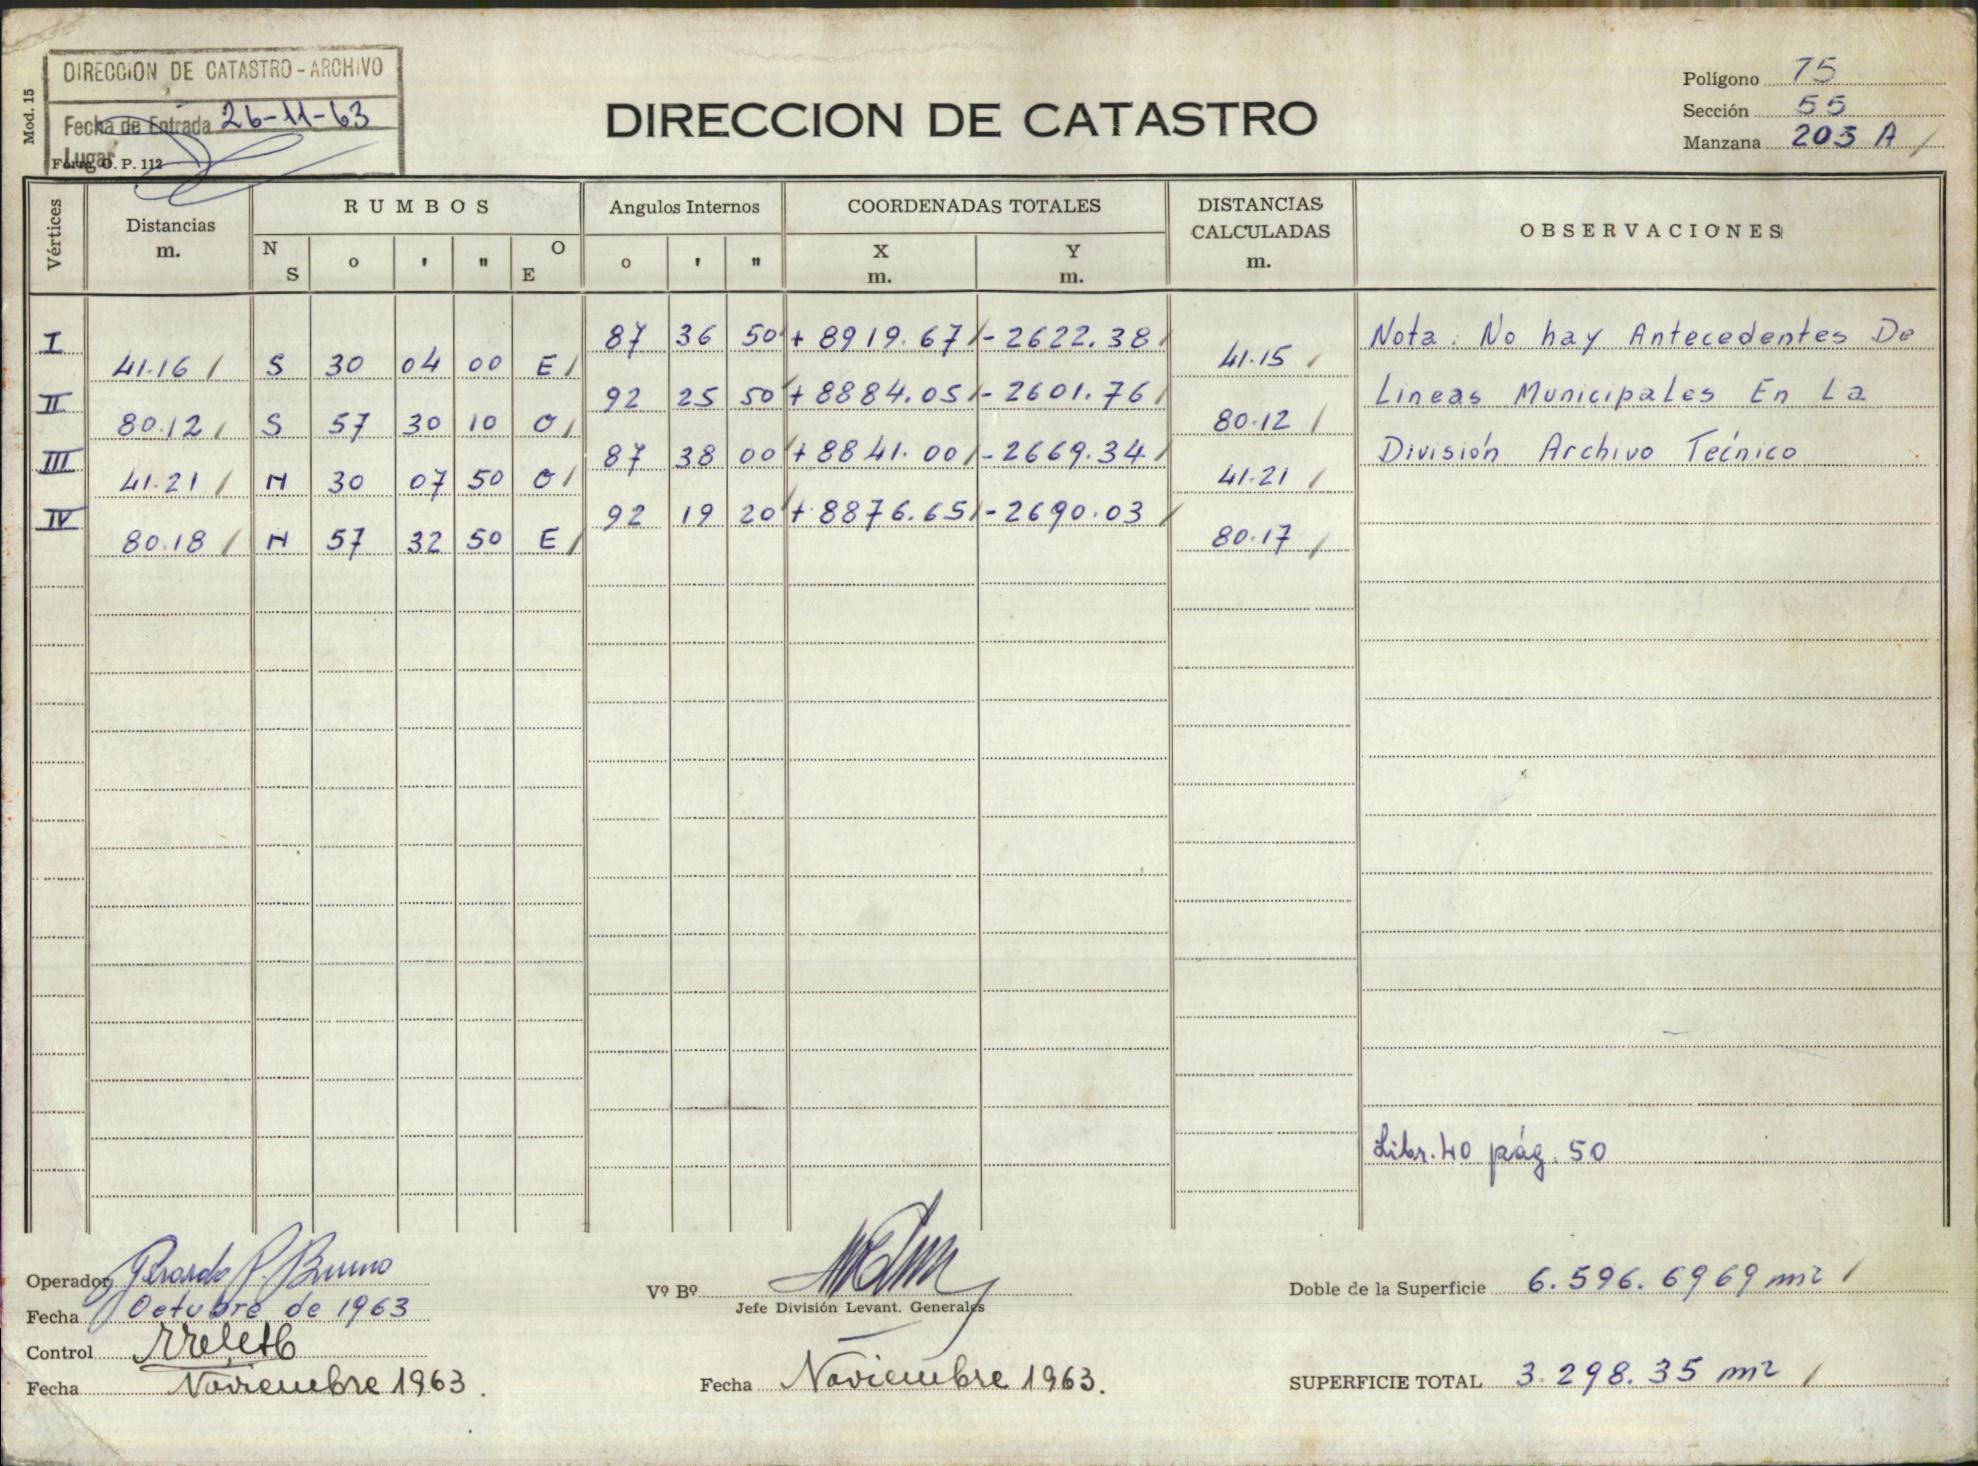 DIRECCION DE CATASTRO - ARCHIVO
Fecha de Entrada 26-11-63
Lugar
Form. O. P. 112
Mod. 15
DIRECCION DE CATASTRO
Polígono 75
Sección 55
Manzana 203 A /
Vértices
Distancias
m.
RUMBOS
N S o ' " O E
Angulos Internos
o ' "
COORDENADAS TOTALES
X Y
m. m.
DISTANCIAS
CALCULADAS
m.
OBSERVACIONES
I 87 36 50 + 8919.67 / - 2622.38 / Nota: No hay Antecedentes De
41.16 / S 30 04 00 E / 41.15 /
II 92 25 50 + 8884.05 / - 2601.76 / Lineas Municipales En La
80.12 / S 57 30 10 O / 80.12 /
III 87 38 00 + 8841.00 / - 2669.34 / División Archivo Técnico
41.21 / N 30 07 50 O / 41.21 /
IV 92 19 20 + 8876.65 / - 2690.03 /
80.18 / N 57 32 50 E / 80.17 /
Libr. 40 pág. 50
Operador Gerardo P. Bruno
Fecha Octubre de 1963
Control
Fecha Noviembre 1963.
Vº Bº
Jefe División Levant. Generales
Fecha Noviembre 1963.
Doble de la Superficie 6.596.6969 m2 /
SUPERFICIE TOTAL 3.298.35 m2 /